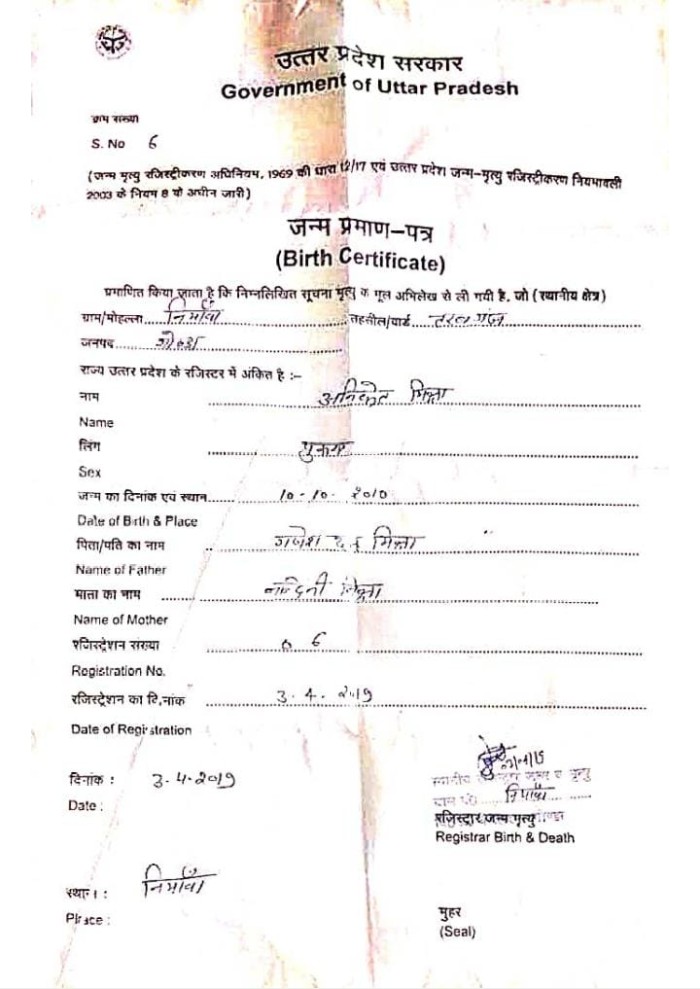 उत्तर प्रदेश सरकार
Government of Uttar Pradesh
क्रम संख्या
S. No 6
(जन्म मृत्यु रजिस्ट्रीकरण अधिनियम, 1969 की धारा 12/17 एवं उत्तर प्रदेश जन्म-मृत्यु रजिस्ट्रीकरण नियमावली
2003 के नियम 8 के अधीन जारी)
जन्म प्रमाण-पत्र
(Birth Certificate)
प्रमाणित किया जाता है कि निम्नलिखित सूचना मृत्यु के मूल अभिलेख से ली गयी है, जो (स्थानीय क्षेत्र)
ग्राम/मोहल्ला तहसील/वार्ड तरबगंज
जनपद गोण्डा
राज्य उत्तर प्रदेश के रजिस्टर में अंकित है :-
नाम अनिकेत मिश्रा
Name
लिंग पुरूष
Sex
जन्म का दिनांक एवं स्थान 10-10-2010
Date of Birth & Place
पिता/पति का नाम गणेश दत्त मिश्रा
Name of Father
माता का नाम नन्दिनी मिश्रा
Name of Mother
रजिस्ट्रेशन संख्या 06
Registration No.
रजिस्ट्रेशन का दिनांक 3.4.2019
Date of Registration
दिनांक : 3-4-2019
Date :
रजिस्ट्रार जन्म मृत्यु
Registrar Birth & Death
स्थान :
Place :
मुहर
(Seal)